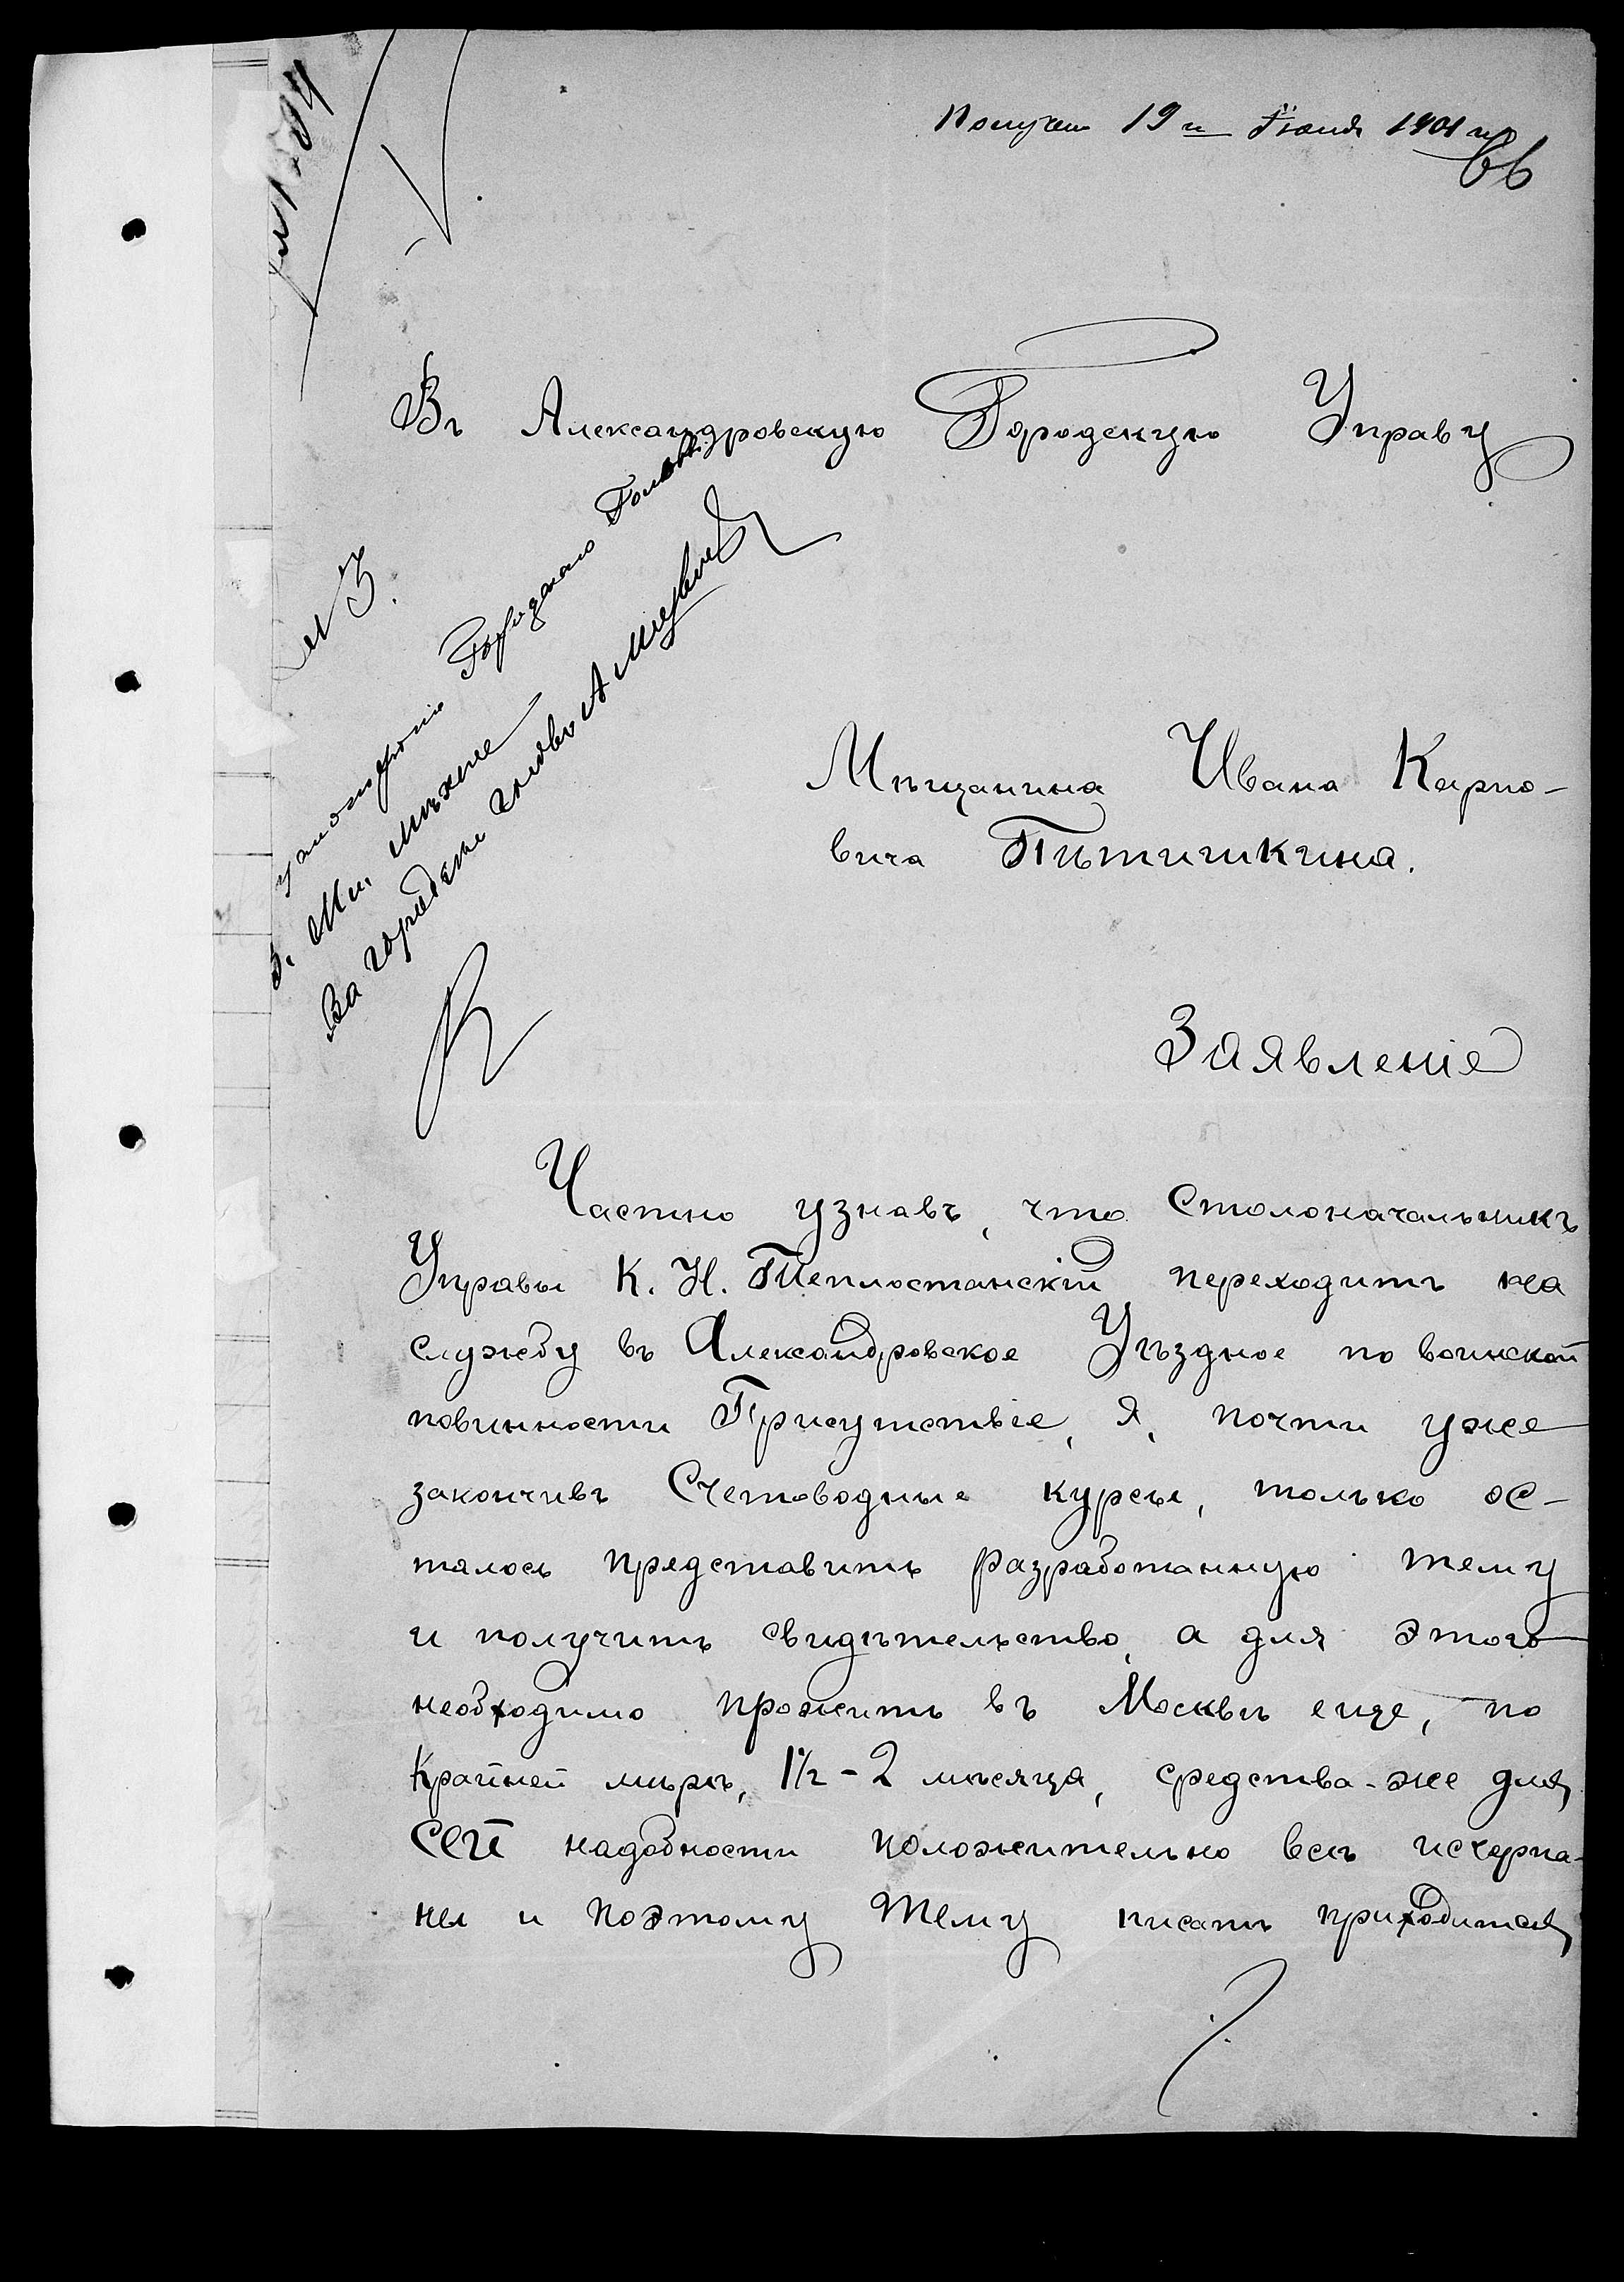 19 1901
66
Въ Александровскую Городскую Управу
№ 3.
Городского Головы
Мѣщанина Ивана Карпо-
вича Пѣтишкина.
Заявленіе
Частно узнавъ, что Столоначальникъ
Управы К. Н. Теплостанскій переходитъ на
службу въ Александровское Уѣздное по воинской
повинности Присутствіе, я, почти уже
закончивъ Счетоводные курсы, только ос-
талось представить разработанную тему
и получить свидѣтельство, а для этого
необходимо прожить въ Москвѣ еще, по
крайней мѣрѣ, 1½ - 2 мѣсяца, средства-же для
сей надобности положительно всѣ исчерпа-
ны и поэтому тему писать приходится